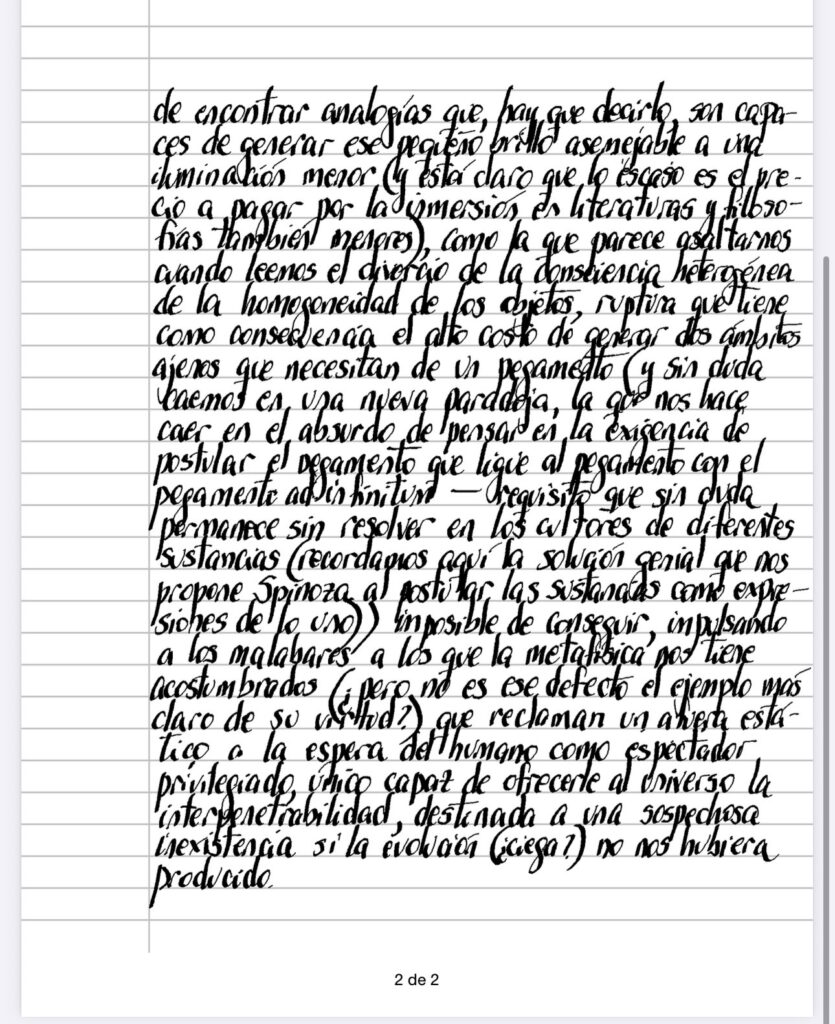 de encontrar analogías que, hay que decirlo, son capa-
ces de generar ese pequeño brillo asemejable a una
iluminación menor (y está claro que lo escaso es el pre-
cio a pagar por la inmersión en literaturas y filoso-
fías también menores), como la que parece asaltarnos
cuando leemos el divorcio de la consciencia heterogénea
de la homogeneidad de los objetos, ruptura que tiene
como consecuencia el alto costo de generar dos ámbitos
ajenos que necesitan de un pegamento (y sin duda
caemos en una nueva paradoja, la que nos hace
caer en el absurdo de pensar en la exigencia de
postular el pegamento que ligue al pegamento con el
pegamento ad infinitum — requisito que sin duda
permanece sin resolver en los cultores de diferentes
sustancias (recordamos aquí la solución genial que nos
propone Spinoza al postular las sustancias como expre-
siones de lo uno)) imposible de conseguir, impulsando
a los malabares a los que la metafísica nos tiene
acostumbrados (¿pero no es ese defecto el ejemplo más
claro de su virtud?) que reclaman un afuera está-
tico a la espera del humano como espectador
privilegiado, único capaz de ofrecerle al universo la
interpenetrabilidad, destinada a una sospechosa
inexistencia si la evolución (¿ciega?) no nos hubiera
producido.
2 de 2